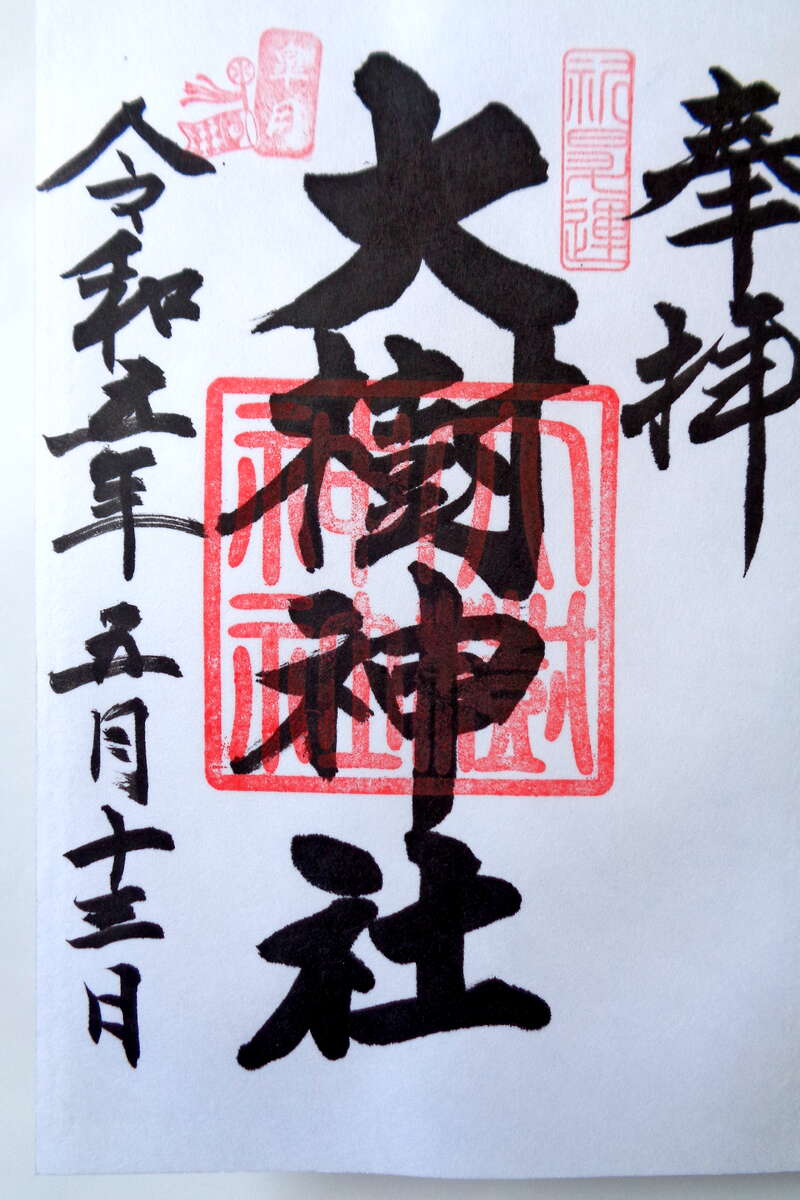 奉拝
祈昇運
大樹神社
大樹神社
皐月
令和五年五月十三日